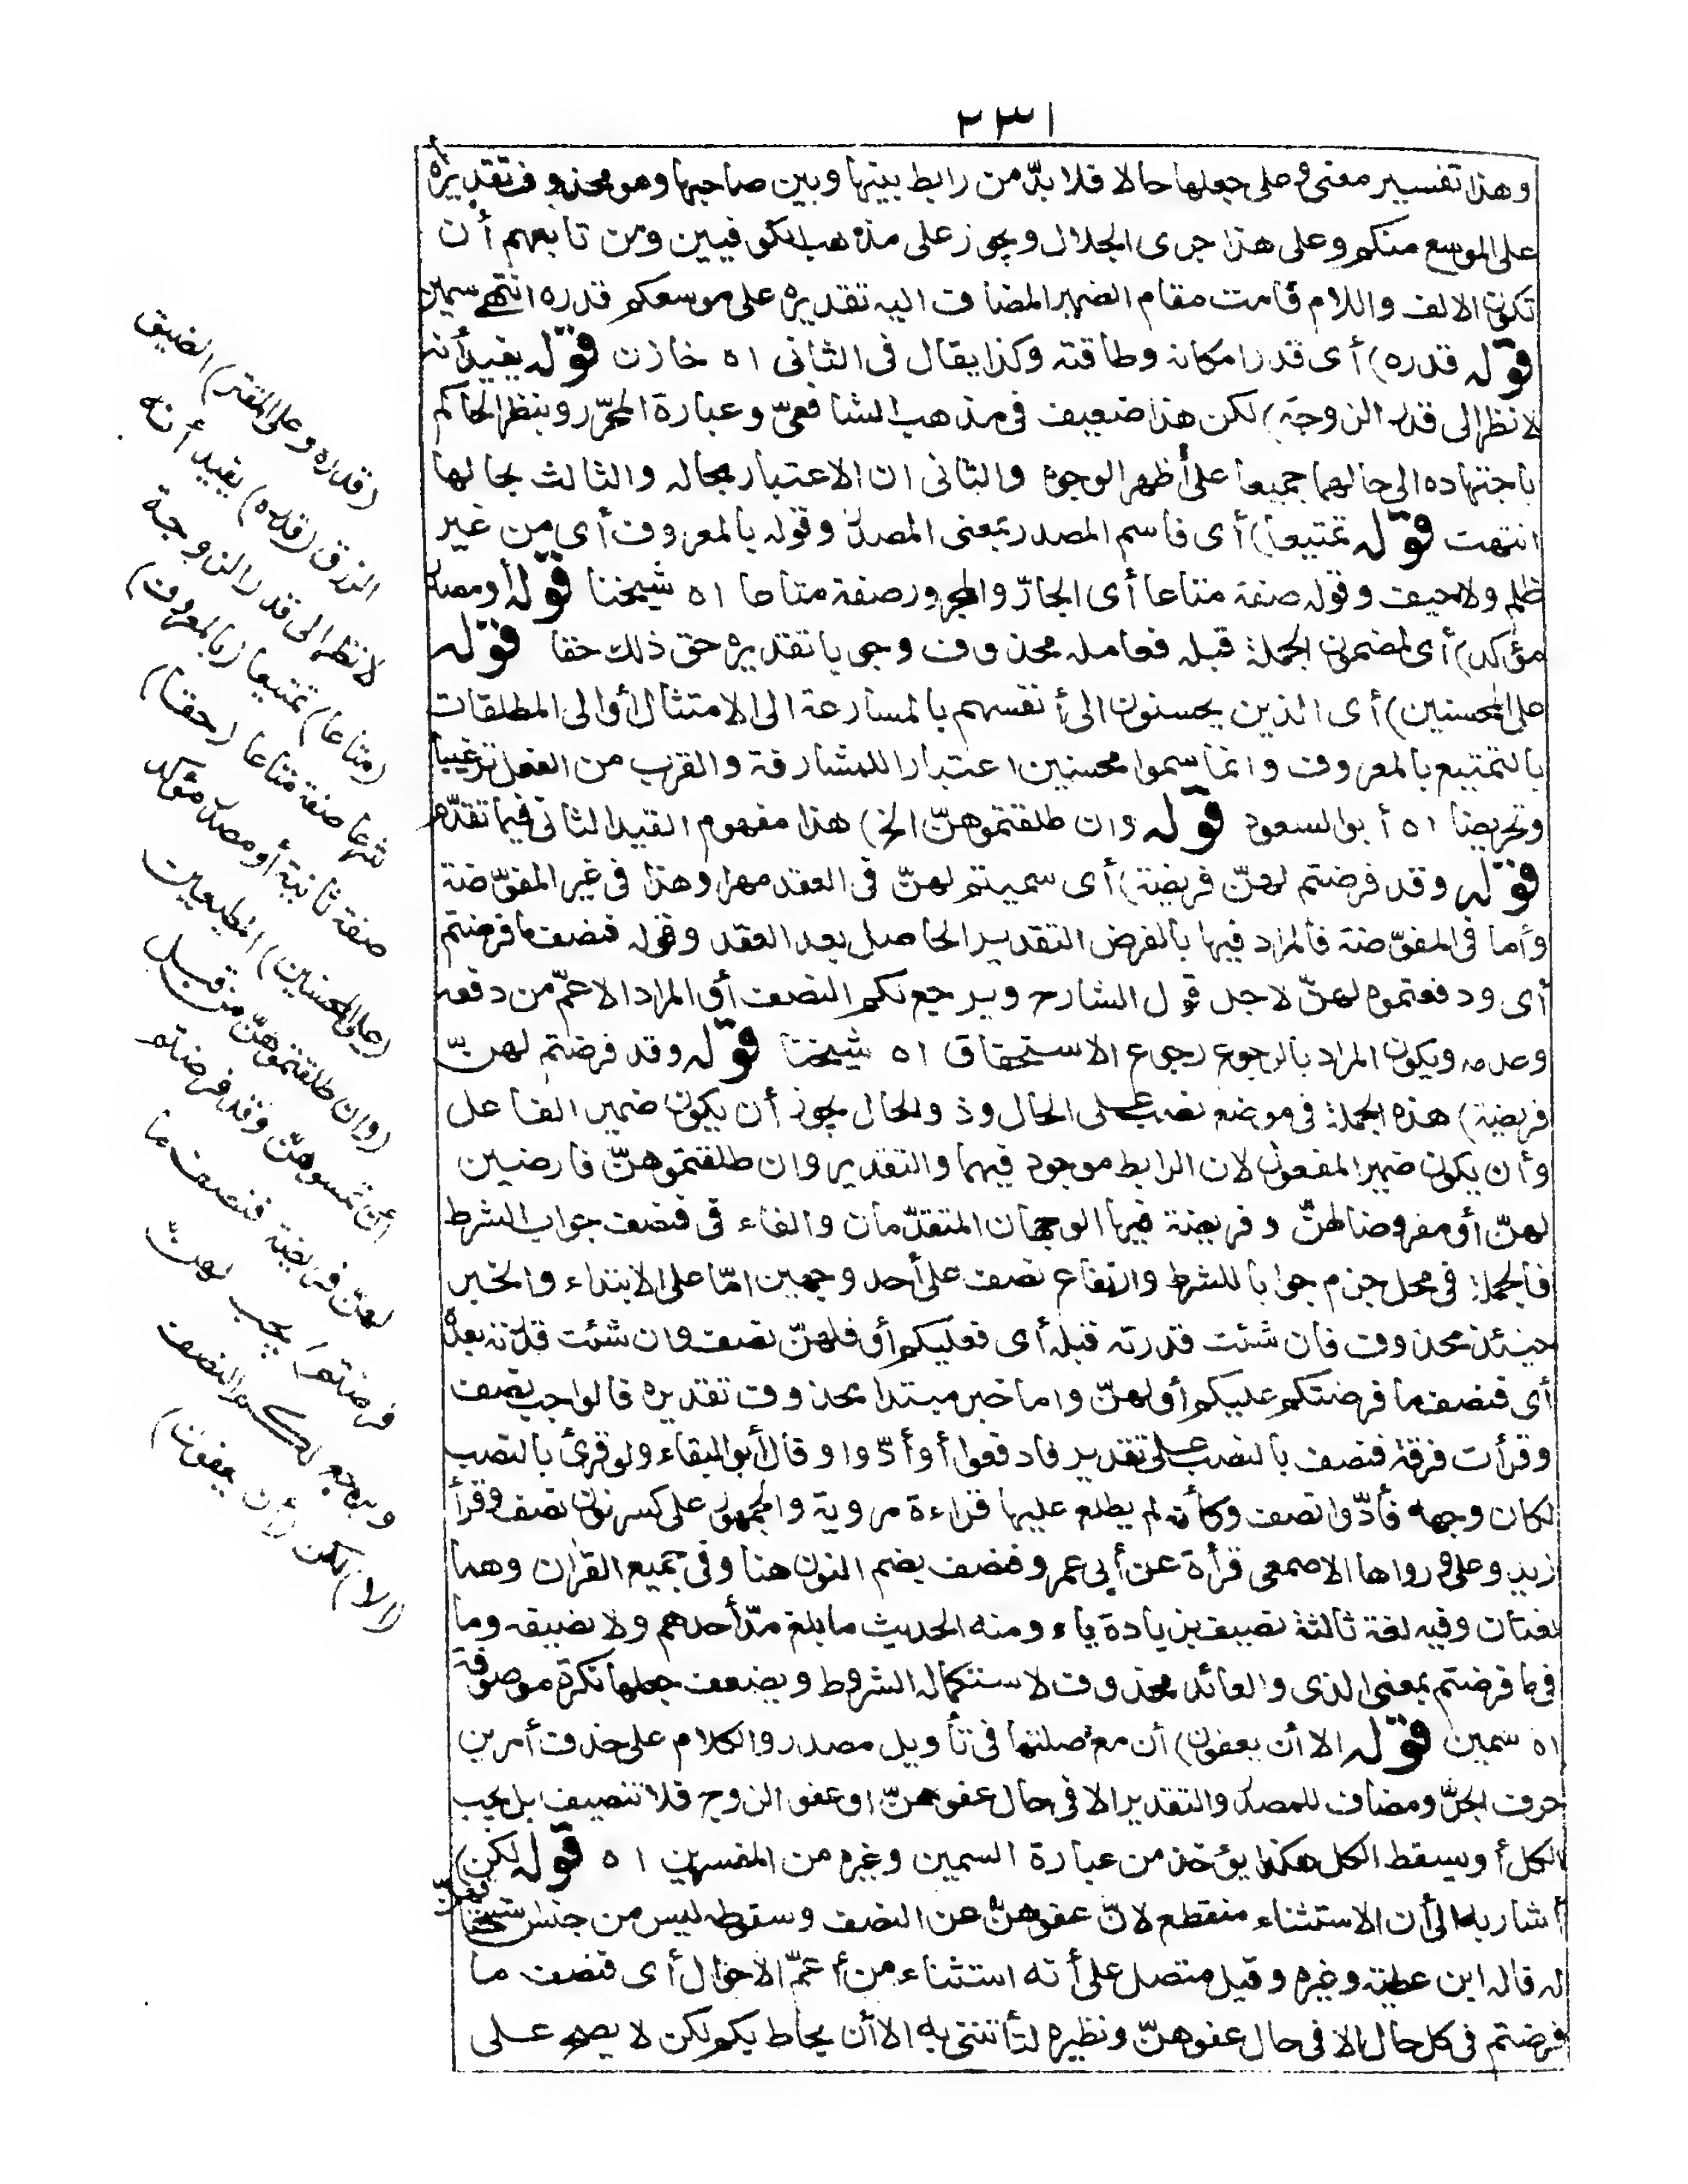 ٢٣١
وهذا تفسير معنى وعلى جعلها حالا فلا بدّ من رابط بينها وبين صاحبها وهو محذوف تقديره
على الموسع منكم وعلى هذا جرى الجلال ويجوز على مذهب الكوفيين ومن تابعهم أن
تكون الالف واللام قامت مقام الضمير المضاف اليه تقديره على موسعكم قدره انتهى سمين
قوله قدره) أى قدر امكانه وطاقته وكذا يقال فى الثانى اه خازن قوله يفيد أنه
لا نظر الى قدر الزوجة) لكن هذا ضعيف فى مذهب الشافعىّ وعبارة المحرّر وينظر الحاكم
باجتهاده الى حالهما جميعا على أظهر الوجوه والثانى ان الاعتبار بحاله والثالث بحالها
انتهت قوله تمتيعا) أى فاسم المصدر بمعنى المصدر وقوله بالمعروف أى من غير
ظلم ولا حيف وقوله صفة متاعا أى الجارّ والمجرور صفة متاعا اه شيخنا قوله أو مصدر
مؤكد) أى لمضمون الجملة قبله فعامله محذوف وجوبا تقديره حق ذلك حقا قوله
على المحسنين) أى الذين يحسنون الى أنفسهم بالمسارعة الى الامتثال أو الى المطلقات
بالتمتيع بالمعروف وانما سموا محسنين اعتبارا للمشارفة والقرب من الفعل ترغيبا
وتحريضا اه أبو السعود قوله وان طلقتموهنّ الخ) هذا مفهوم القيد الثانى فيما تقدّم
قوله وقد فرضتم لهنّ فريضة) أى سميتم لهنّ فى العقد مهرا وهذا فى غير المفوّضة
وأما فى المفوّضة فالمراد فيها بالفرض التقدير الحاصل بعد العقد وقوله فنصف ما فرضتم
أى ودفعتموه لهنّ لاجل قول الشارح ويرجع لكم النصف أو المراد الاعمّ من دفعه
وعدمه ويكون المراد بالرجوع رجوع الاستحقاق اه شيخنا قوله وقد فرضتم لهنّ
فريضة) هذه الجملة فى موضع نصب على الحال وذو الحال يجوز أن يكون ضمير الفاعل
وأن يكون ضمير المفعول لان الرابط موجود فيهما والتقدير وان طلقتموهنّ فارضين
لهنّ أو مفروضا لهنّ وفريضة فيها الوجهان المتقدّمان والفاء فى فنصف جواب الشرط
فالجملة فى محل جزم جوابا للشرط وارتفاع نصف على أحد وجهين امّا على الابتداء والخبر
حينئذ محذوف فان شئت قدرته قبله أى فعليكم أو فلهنّ نصف وان شئت قدّرته بعده
أى فنصف ما فرضتكم عليكم أو لهنّ واما خبر مبتدا محذوف تقديره فالواجب نصف
وقرأت فرقة فنصف بالنصب على تقدير فادفعوا أو أدّوا وقال أبو البقاء ولو قرئ بالنصب
لكان وجهه فأدّوا نصف وكأنه لم يطلع عليها قراءة مروية والجمهور على كسر نون نصف وقرأ
زيد وعلى ورواها الاصمعى قرأة عن أبى عمرو فنصف بضم النون هنا وفى جميع القرآن وهما
لغتان وفيه لغة ثالثة نصيف بزيادة ياء ومنه الحديث ما بلغ مدّ أحدهم ولا نصيفه وما
فى ما فرضتم بمعنى الذى والعائد محذوف لاستكمال الشروط ويضعف جعلها نكرة موصوفة
اه سمين قوله الا أن يعفون) أن مع صلتها فى تأويل مصدر والكلام على حذف أمرين
حرف الجرّ ومضاف للمصدر والتقدير الا فى حال عفوهنّ او عفو الزوج فلا تنصيف بل يجب
الكل أو يسقط الكل هكذا يؤخذ من عبارة السمين وغيره من المفسرين اه قوله لكن)
أشار به الى أن الاستثناء منقطع لانّ عفوهنّ عن النصف وسقوطه ليس من جنس استحقاقهنّ
له قاله ابن عطية وغيره وقيل متصل على أنه استثناء من أعمّ الاحوال أى فنصف ما
فرضتم فى كل حال الا فى حال عفوهنّ ونظيره لتأتننى به الا أن يحاط بكم لكن لا يصح على
(قدره وعلى المقتر) الضيق
الرزق (قدره) يفيد أنه
لا نظر الى قدر الزوجة
(متاعا) تمتيعا (بالمعروف)
شرعا صفة متاعا (حقا)
صفة ثانية أو مصدر مؤكد
(على المحسنين) المطيعين
(وان طلقتموهنّ من قبل
أن تمسوهنّ وقد فرضتم
لهنّ فريضة فنصف ما
فرضتم) يجب لهنّ
ويرجع لكم النصف
(الا) لكن (أن يعفون)